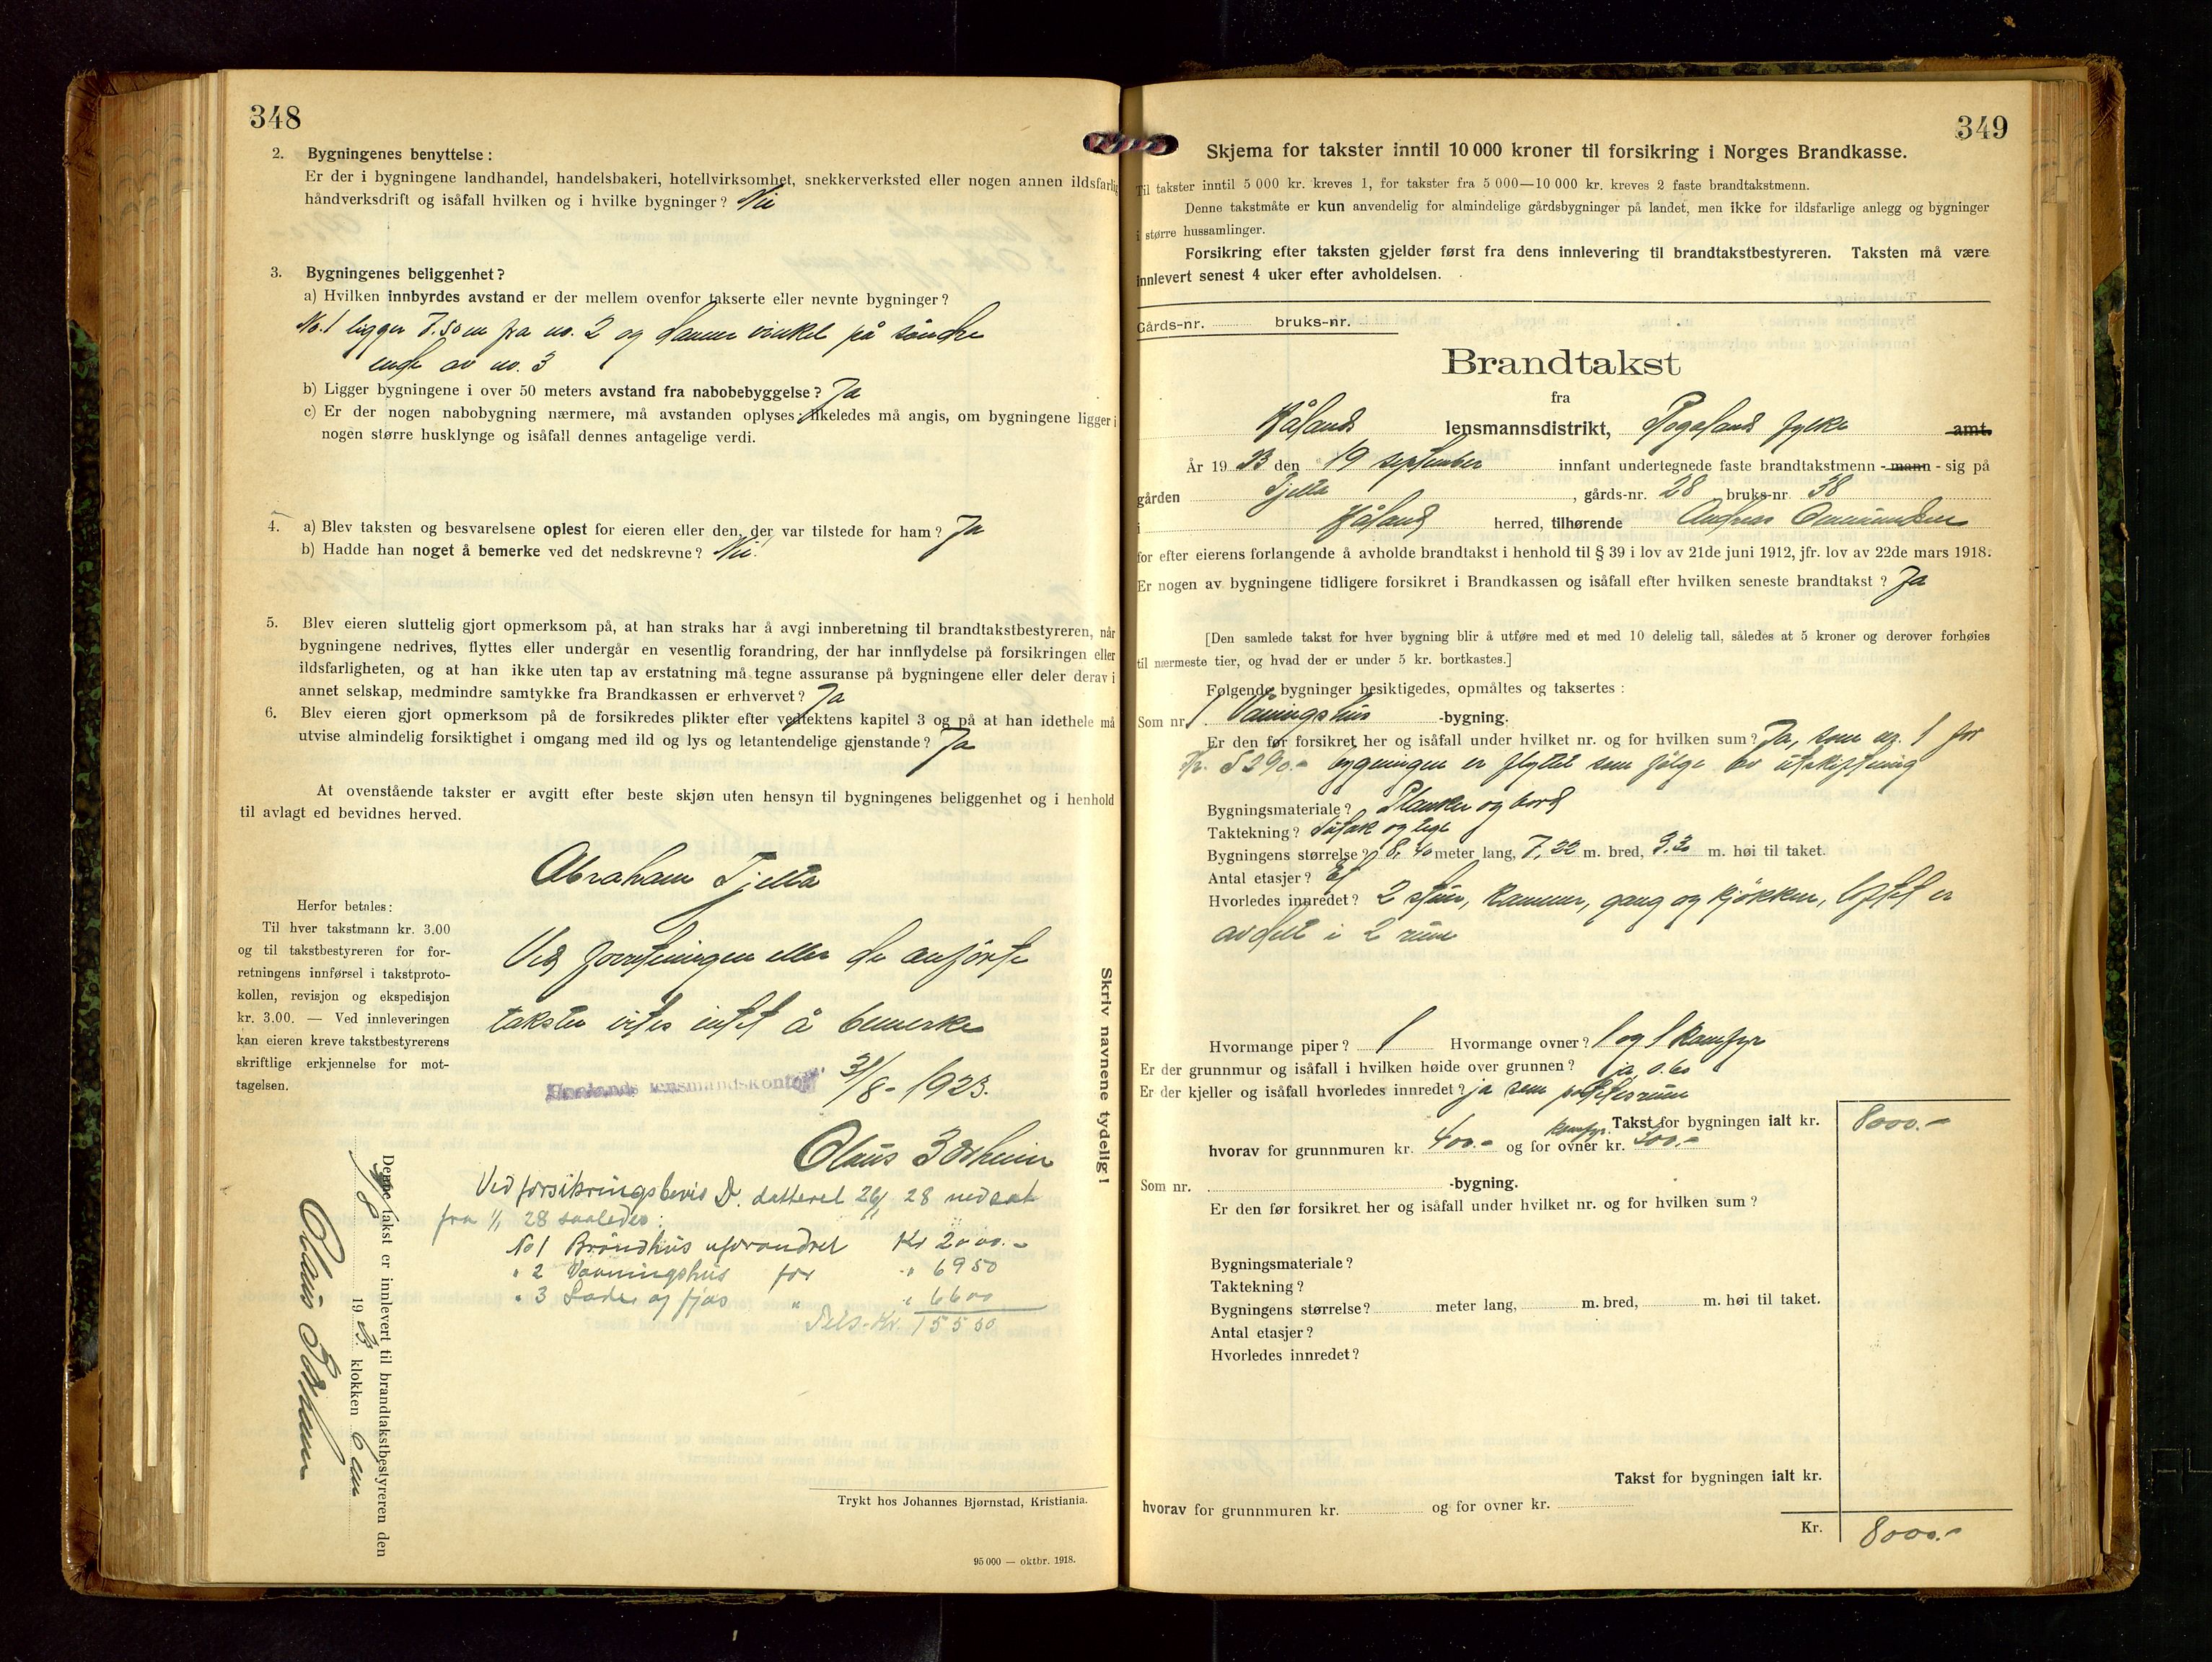 348
2. Bygningenes benyttelse:
Er der i bygningene landhandel, handelsbakeri, hotellvirksomhet, snekkerverksted eller nogen annen ildsfarlig
håndverksdrift og isåfall hvilken og i hvilke bygninger? Nei
3. Bygningenes beliggenhet?
a) Hvilken innbyrdes avstand er der mellem ovenfor takserte eller nevnte bygninger?
No. 1 ligger 7.50 m fra no. 2 og danner vinkel på søndre
ende av no. 3
b) Ligger bygningene i over 50 meters avstand fra nabobebyggelse? Ja
c) Er der nogen nabobygning nærmere, må avstanden oplyses; likeledes må angis, om bygningene ligger i
nogen større husklynge og isåfall dennes antagelige verdi.
4. a) Blev taksten og besvarelsene oplest for eieren eller den, der var tilstede for ham? Ja
b) Hadde han noget å bemerke ved det nedskrevne? Nei
5. Blev eieren sluttelig gjort opmerksom på, at han straks har å avgi innberetning til brandtakstbestyreren, når
bygningene nedrives, flyttes eller undergår en vesentlig forandring, der har innflydelse på forsikringen eller
ildsfarligheten, og at han ikke uten tap av erstatning må tegne assuranse på bygningene eller deler derav i
annet selskap, medmindre samtykke fra Brandkassen er erhvervet? Ja
6. Blev eieren gjort opmerksom på de forsikredes plikter efter vedtektens kapitel 3 og på at han idethele må
utvise almindelig forsiktighet i omgang med ild og lys og letantendelige gjenstande? Ja
At ovenstående takster er avgitt efter beste skjøn uten hensyn til bygningenes beliggenhet og i henhold
til avlagt ed bevidnes herved.
Abraham Tjelta
Herfor betales:
Til hver takstmann kr. 3.00
og til takstbestyreren for for-
retningens innførsel i takstproto-
kollen, revisjon og ekspedisjon
kr. 3.00. — Ved innleveringen
kan eieren kreve takstbestyrerens
skriftlige erkjennelse for mot-
tagelsen.
Ved forretningen eller de anførte
takster vites intet å bemerke
Haalands lensmandskontor 31/8 - 1923.
Olaus
Ved forsikringsbevis D. datteret 28 nedsat
fra 1/1 28 saaledes:
No 1 Brøndhus uforandret Kr 2000.-
" 2 Vaaningshus for " 6950
" 3 Lade og fjøs " " 6600
Tils. Kr. 15550
Skriv navnene tydelig!
Denne takst er innlevert til brandtakstbestyreren den
8 19 23 klokken 6 em
Olaus
Trykt hos Johannes Bjørnstad, Kristiania.
95 000 — oktbr. 1918.
349
Skjema for takster inntil 10 000 kroner til forsikring i Norges Brandkasse.
Til takster inntil 5 000 kr. kreves 1, for takster fra 5 000—10 000 kr. kreves 2 faste brandtakstmenn.
Denne takstmåte er kun anvendelig for almindelige gårdsbygninger på landet, men ikke for ildsfarlige anlegg og bygninger
i større hussamlinger.
Forsikring efter taksten gjelder først fra dens innlevering til brandtakstbestyreren. Taksten må være
innlevert senest 4 uker efter avholdelsen.
Gårds-nr. bruks-nr.
Brandtakst
fra
Håland lensmannsdistrikt, Rogaland fylke amt.
År 19 23 den 19 september innfant undertegnede faste brandtakstmenn - mann - sig på
gården Tjelta, gårds-nr. 28 bruks-nr. 38
i Håland herred, tilhørende Andreas
for efter eierens forlangende å avholde brandtakst i henhold til § 39 i lov av 21de juni 1912, jfr. lov av 22de mars 1918.
Er nogen av bygningene tidligere forsikret i Brandkassen og isåfall efter hvilken seneste brandtakst? Ja
[Den samlede takst for hver bygning blir å utføre med et med 10 delelig tall, således at 5 kroner og derover forhøies
til nærmeste tier, og hvad der er under 5 kr. bortkastes.]
Følgende bygninger besiktigedes, opmåltes og taksertes:
Som nr. 1 Våningshus -bygning.
Er den før forsikret her og isåfall under hvilket nr. og for hvilken sum? Ja, som no. 1 for
Kr. 5290.- bygningen er flyttet som følge av utskiftning
Bygningsmateriale? Planker og bord
Taktekning? og tegl
Bygningens størrelse? 8,40 meter lang, 7,22 m. bred, 3.30 m. høi til taket.
Antal etasjer? Et
Hvorledes innredet? 2 stuer, kammer, gang og kjøkken, loftet er
avdelt i 2 rum
Hvormange piper? 1 Hvormange ovner? 1 og 1 komfyr
Er der grunnmur og isåfall i hvilken høide over grunnen? ja, 0.60
Er der kjeller og isåfall hvorledes innredet? ja som potetesrum
Takst for bygningen ialt kr. 8000.-
hvorav for grunnmuren kr. 400.- og for komfyr. ovner kr. 300.-
Som nr. -bygning.
Er den før forsikret her og isåfall under hvilket nr. og for hvilken sum?
Bygningsmateriale?
Taktekning?
Bygningens størrelse? meter lang, m. bred, m. høi til taket.
Antal etasjer?
Hvorledes innredet?
Takst for bygningen ialt kr.
hvorav for grunnmuren kr. og for ovner kr.
Kr. 8000.-